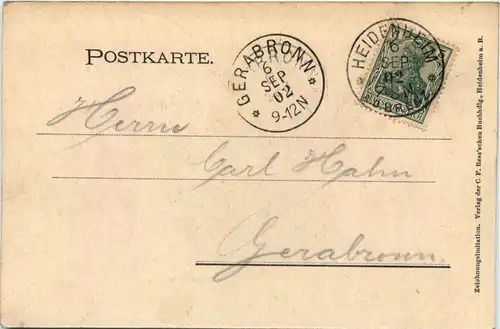 POSTKARTE.
* GERABRONN *
6
SEP
02
9-12N
* HEIDENHEIM *
6
SEP
02
Herrn
Carl Hahn
Gerabronn.
Zeichnungsimitation. Verlag der C. F. Rees'schen Buchhdlg., Heidenheim a. B.